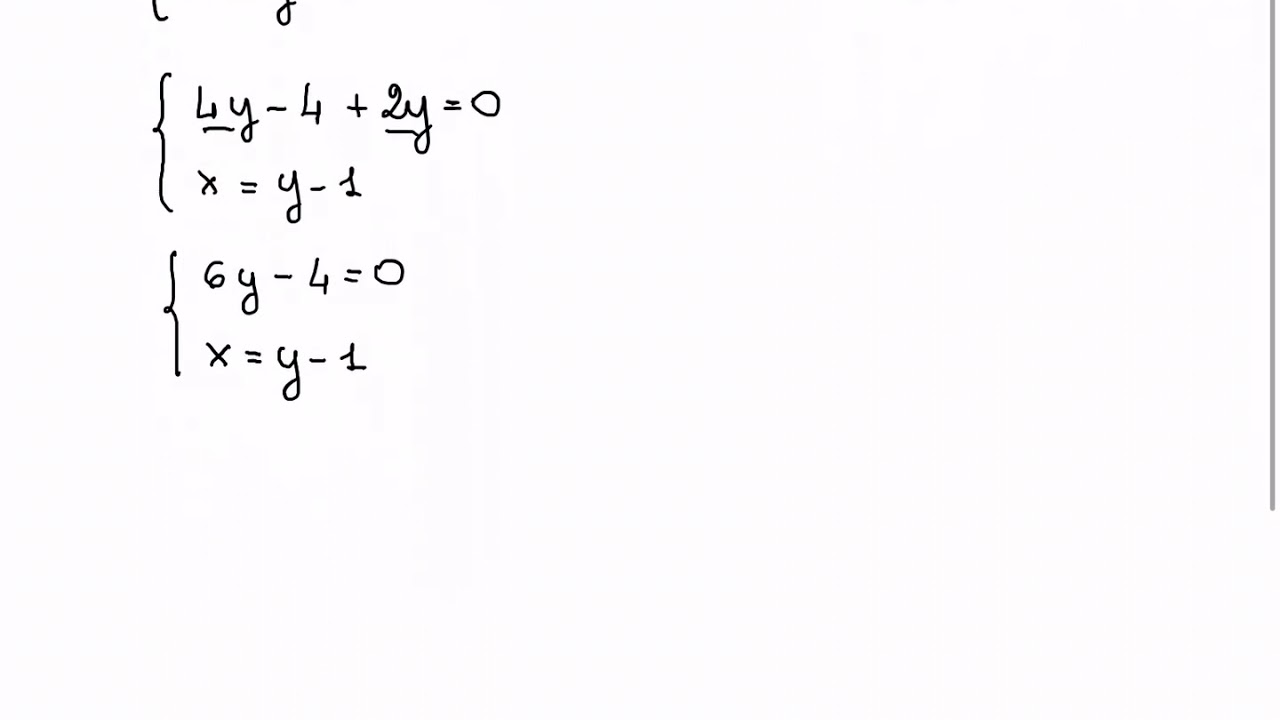 4y - 4 + 2y = 0
x = y - 1
6y - 4 = 0
x = y - 1